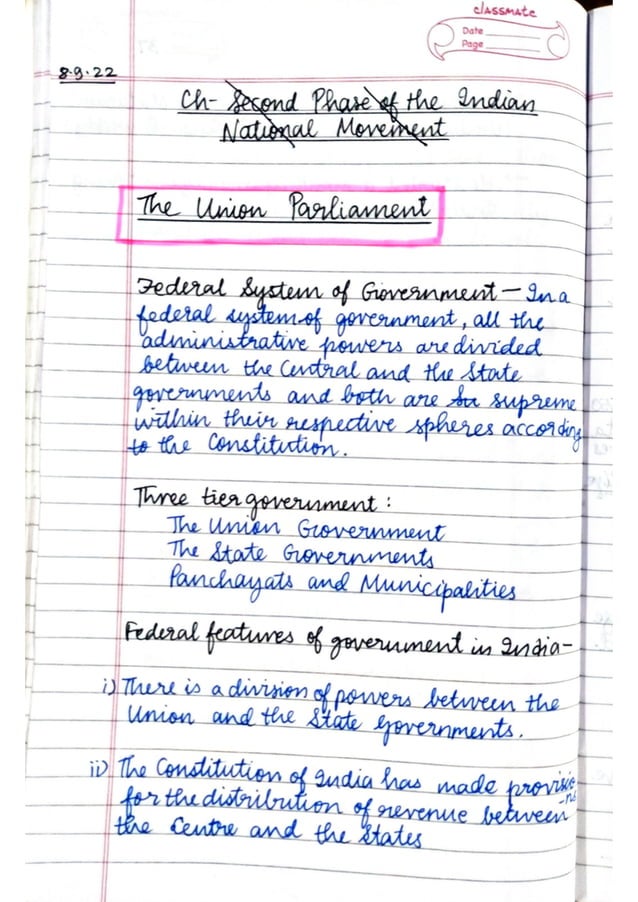 classmate
Date
Page
8.9.22
Ch- Second Phase of the Indian
National Movement
The Union Parliament
Federal System of Government – In a
federal system of government, all the
administrative powers are divided
between the Central and the State
governments and both are su supreme
within their respective spheres according
to the Constitution.
Three tier government :
The Union Government
The State Governments
Panchayats and Municipalities
Federal features of government in India–
i) There is a division of powers between the
Union and the State governments.
ii) The Constitution of India has made provisio
-ns
for the distribution of revenue between
the Centre and the States